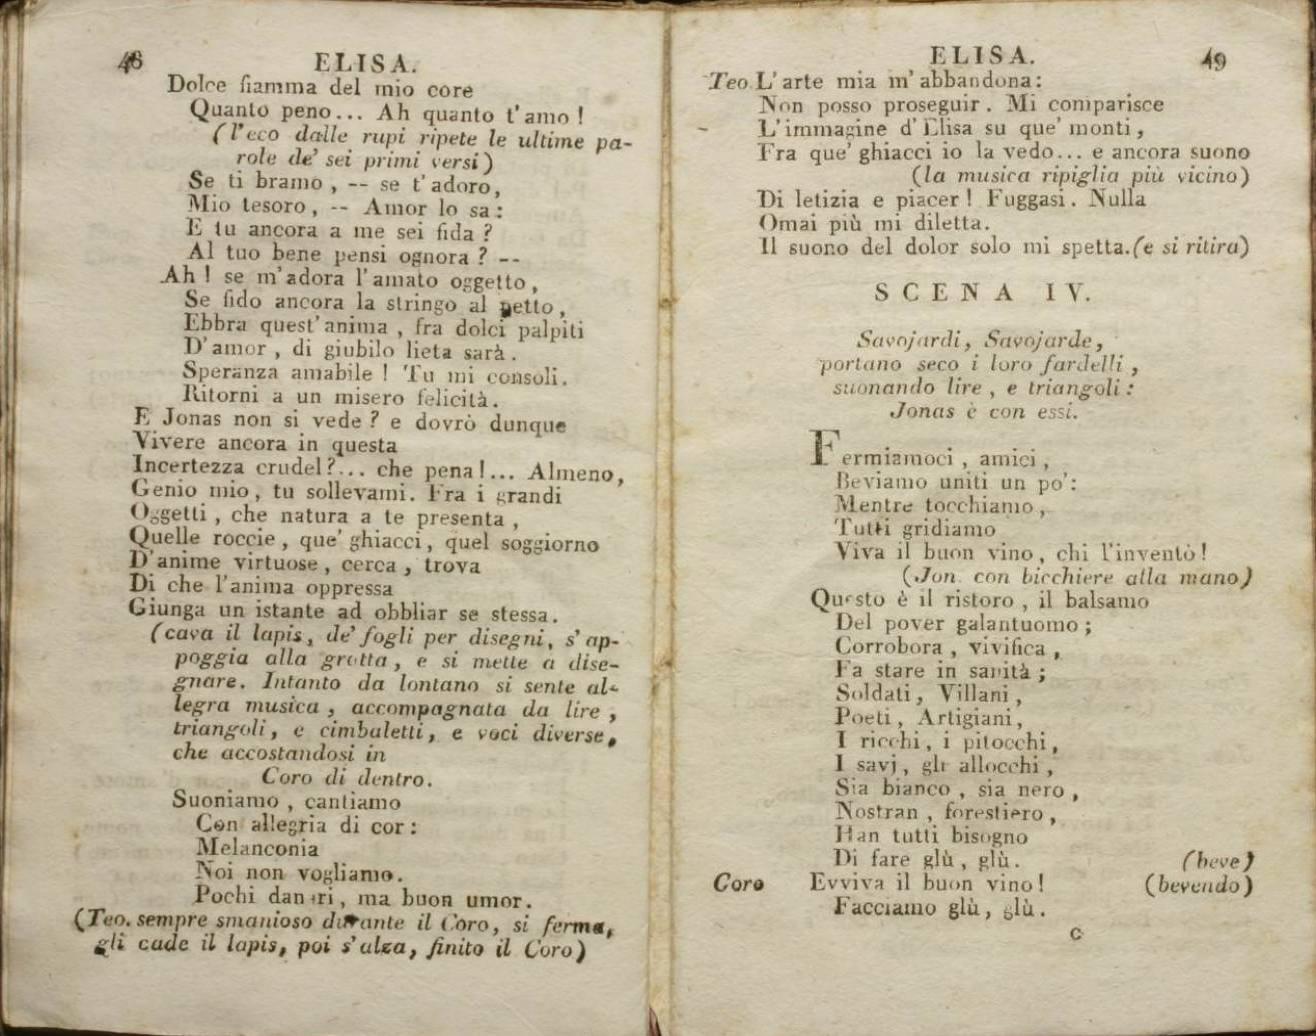 46
ELISA.
Dolce fiamma del mio core
Quanto peno... Ah quanto t'amo!
(l'eco dalle rupi ripete le ultime pa-
role de' sei primi versi)
Se ti bramo, -- se t'adoro,
Mio tesoro, -- Amor lo sa:
E tu ancora a me sei fida?
Al tuo bene pensi ognora? --
Ah! se m'adora l'amato oggetto,
Se fido ancora la stringo al petto,
Ebbra quest'anima, fra dolci palpiti
D'amor, di giubilo lieta sarà.
Speranza amabile! Tu mi consoli.
Ritorni a un misero felicità.
E Jonas non si vede? e dovrò dunque
Vivere ancora in questa
Incertezza crudel?... che pena!... Almeno,
Genio mio, tu sollevami. Fra i grandi
Oggetti, che natura a te presenta,
Quelle roccie, que' ghiacci, quel soggiorno
D'anime virtuose, cerca, trova
Di che l'anima oppressa
Giunga un istante ad obbliar se stessa.
(cava il lapis, de' fogli per disegni, s'ap-
poggia alla grotta, e si mette a dise-
gnare. Intanto da lontano si sente al-
legra musica, accompagnata da lire,
triangoli, e cimbaletti, e voci diverse,
che accostandosi in
Coro di dentro.
Suoniamo, cantiamo
Con allegria di cor:
Melanconia
Noi non vogliamo.
Pochi danari, ma buon umor.
(Teo. sempre smanioso durante il Coro, si ferma,
gli cade il lapis, poi s'alza, finito il Coro)
ELISA.
49
Teo. L'arte mia m'abbandona:
Non posso proseguir. Mi comparisce
L'immagine d'Elisa su que' monti,
Fra que' ghiacci io la vedo... e ancora suono
(la musica ripiglia più vicino)
Di letizia e piacer! Fuggasi. Nulla
Omai più mi diletta.
Il suono del dolor solo mi spetta. (e si ritira)
SCENA IV.
Savojardi, Savojarde,
portano seco i loro fardelli,
suonando lire, e triangoli:
Jonas è con essi.
Fermiamoci, amici,
Beviamo uniti un po':
Mentre tocchiamo,
Tutti gridiamo
Viva il buon vino, chi l'inventò!
(Jon. con bicchiere alla mano)
Questo è il ristoro, il balsamo
Del pover galantuomo;
Corrobora, vivifica,
Fa stare in sanità;
Soldati, Villani,
Poeti, Artigiani,
I ricchi, i pitocchi,
I savj, gli allocchi,
Sia bianco, sia nero,
Nostran, forestiero,
Han tutti bisogno
Di fare glù, glù. (beve)
Coro Evviva il buon vino! (bevendo)
Facciamo glù, glù.
C